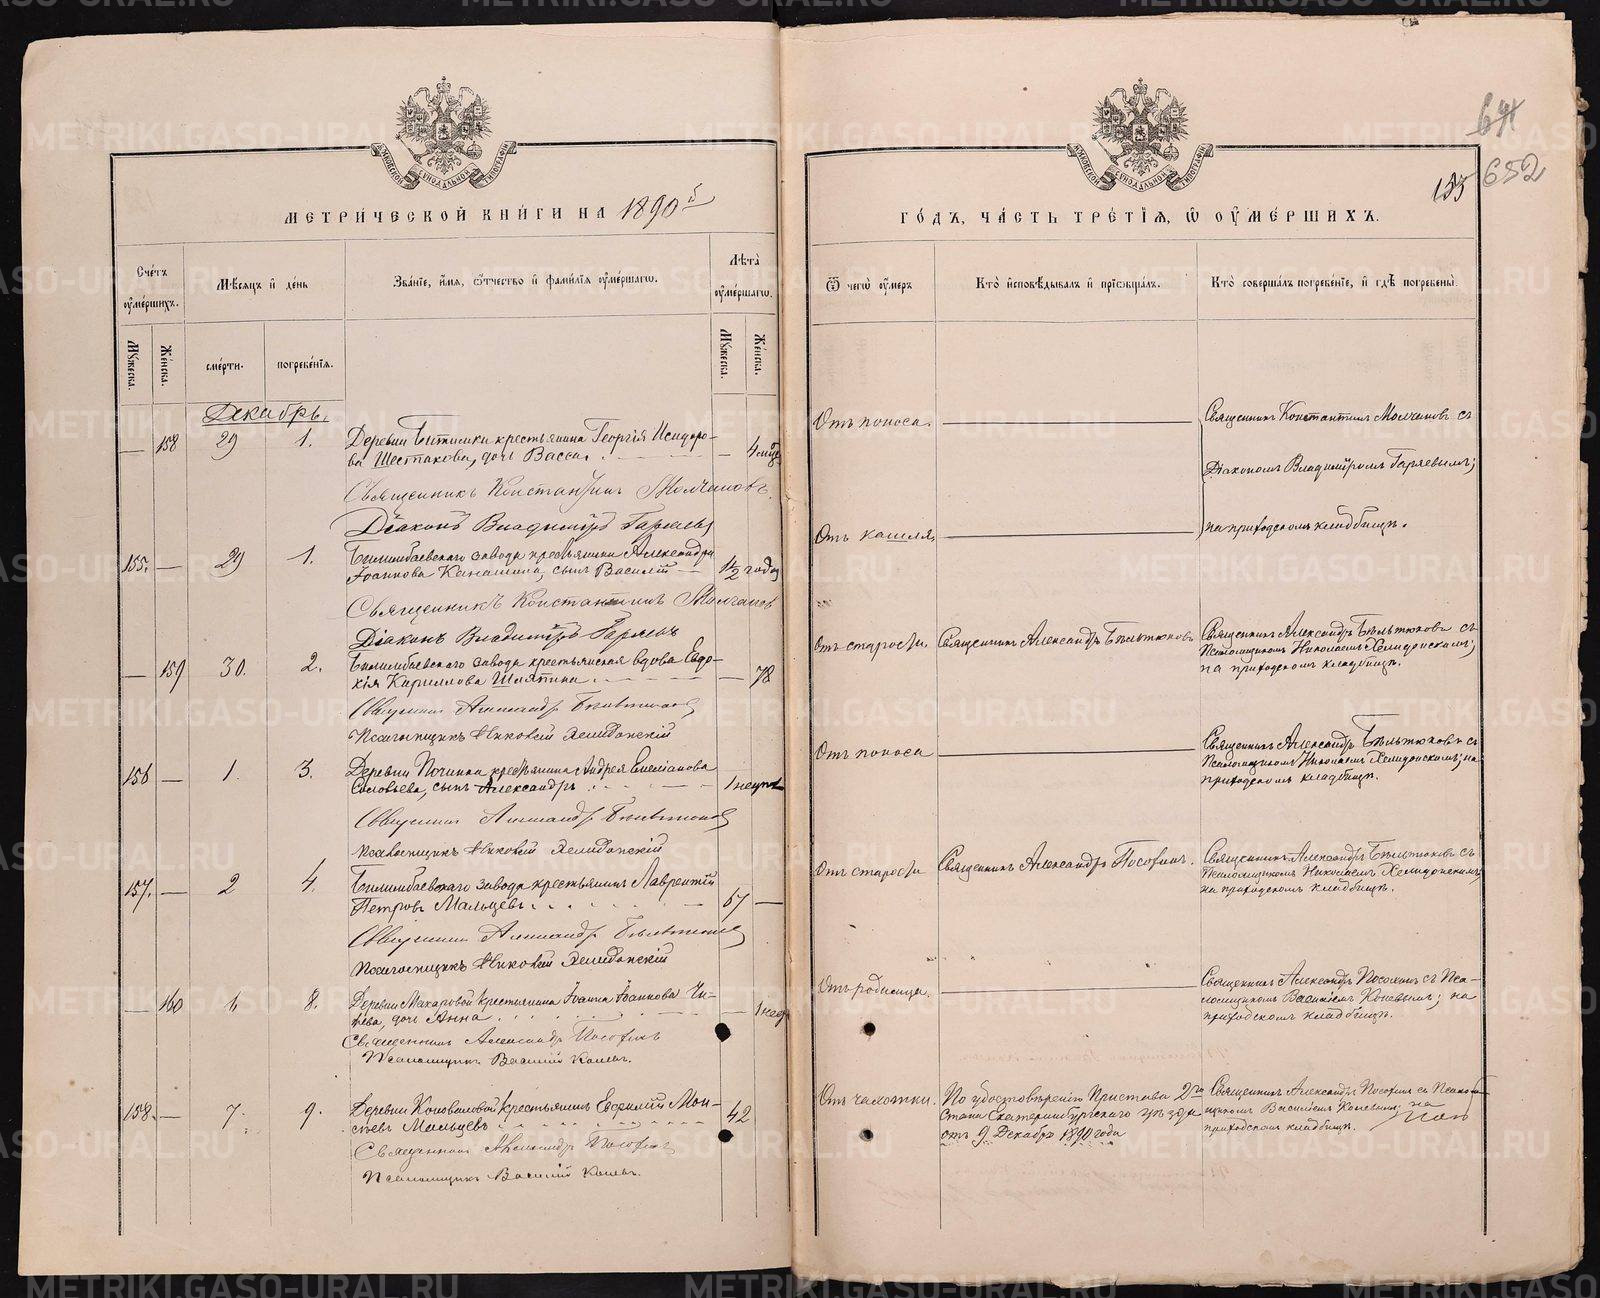 МЕТРИ́ЧЕСКОЙ КНИ́ГИ НА 1890 й
Сче́тъ оу҆ме́ршихъ.
Мѣ́сѧцъ и҆ де́нь
Зва́нїе, и҆́мѧ, ѻ҆́тчество и҆ фами́лїѧ оу҆ме́ршагѡ.
Лѣ́та оу҆ме́ршагѡ.
Мꙋжеска.
Же́нска.
сме́рти.
погребе́нїѧ.
Мꙋжеска.
Же́нска.
Декабрь.
— 158 29 1. Деревни Битимки крестьянина Георгія Исидоро-
ва Шестакова, дочь Васса. — 4 мѣс
Священникъ Константинъ Молчановъ.
Діаконъ Владиміръ Гаряевъ
155. — 29 1. Билимбаевскаго завода крестьянина Александра
Іоаннова Канашина, сынъ Василій — 1½ года
Священникъ Константинъ Молчановъ
Діаконъ Владиміръ Гаряевъ
— 159 30. 2. Билимбаевскаго завода крестьянская вдова Евдо-
кія Кириллова Шляпина — 78
Священникъ Александръ Бѣльтюковъ
Псаломщикъ Николай Хелидонскій
156 — 1. 3. Деревни Починка крестьянина Андрея Емеліанова
Соловьева, сынъ Александръ 1 нед
Священникъ Александръ Бѣльтюковъ
Псаломщикъ Николай Хелидонскій
157. — 2 4. Билимбаевскаго завода крестьянинъ Лаврентій
Петровъ Мальцевъ. 67 —
Священникъ Александръ Бѣльтюковъ
Псаломщикъ Николай Хелидонскій
— 160 8. Деревни Макаровой крестьянина Іоанна Іоаннова
дочь Анна — 1 нед
Священникъ Александръ Посохинъ
Псаломщикъ Василій Коневъ.
158. — 7. 9. Деревни Коноваловой крестьянинъ Евфимій Мои-
сѣевъ Мальцевъ 42
Священникъ Александръ Посохинъ
Псаломщикъ Василій Коневъ.
652
ГО́ДЪ, ЧА́СТЬ ТРЕ́ТЇѦ, Ѡ҆ ОУ҆МЕ́РШИХЪ.
Ѿ чегѡ̀ оу҆́меръ
Кто̀ и҆сповѣ́дывалъ и҆ прїѡбща́лъ.
Кто̀ соверша́лъ погребе́нїе, и҆ гдѣ̀ погребены̀.
Отъ поноса. —
Священникъ Константинъ Молчановъ съ
Діакономъ Владиміромъ Гаряевымъ;
Отъ кашля, —
на приходскомъ кладбищѣ.
Отъ старости. Священникъ Александръ Бѣльтюковъ
Священникъ Александръ Бѣльтюковъ съ
Псаломщикомъ Николаемъ Хелидонскимъ;
на приходскомъ кладбищѣ.
Отъ поноса —
Священникъ Александръ Бѣльтюковъ съ
Псаломщикомъ Николаемъ Хелидонскимъ; на
приходскомъ кладбищѣ.
Отъ старости Священникъ Александръ Посохинъ.
Священникъ Александръ Бѣльтюковъ съ
Псаломщикомъ Николаемъ Хелидонскимъ;
на приходскомъ кладбищѣ.
Отъ родимца. —
Священникъ Александръ Посохинъ съ Пса-
ломщикомъ Василіемъ Коневымъ; на
приходскомъ кладбищѣ.
Отъ чахотки. По удостовѣренію Пристава 2го
Стана Екатеринбургскаго уѣзда
отъ 9 Декабря 1890 года
Священникъ Александръ Посохинъ съ Псалом-
щикомъ Василіемъ Коневымъ; на
приходскомъ кладбищѣ.
METRIKI.GASO-URAL.RU